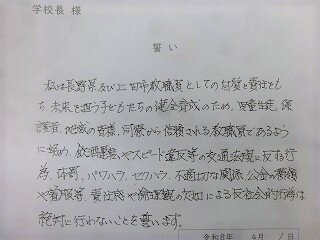 学校長 様
誓い
私は長野県及び上田市教職員としての自覚と責任をも
ち、未来を担う子どもたちの健全育成のため、児童生徒、保
護者、地域の皆様、同僚から信頼される教職員であるよう
に努め、飲酒運転やスピード違反等の交通法規に反する行
為、体罰、パワハラ、セクハラ、不適切な関係、公金の横領
や着服等、責任感や倫理観の欠如による反社会的行為は
絶対に行わないことを誓います。
令和8年 4月 1日